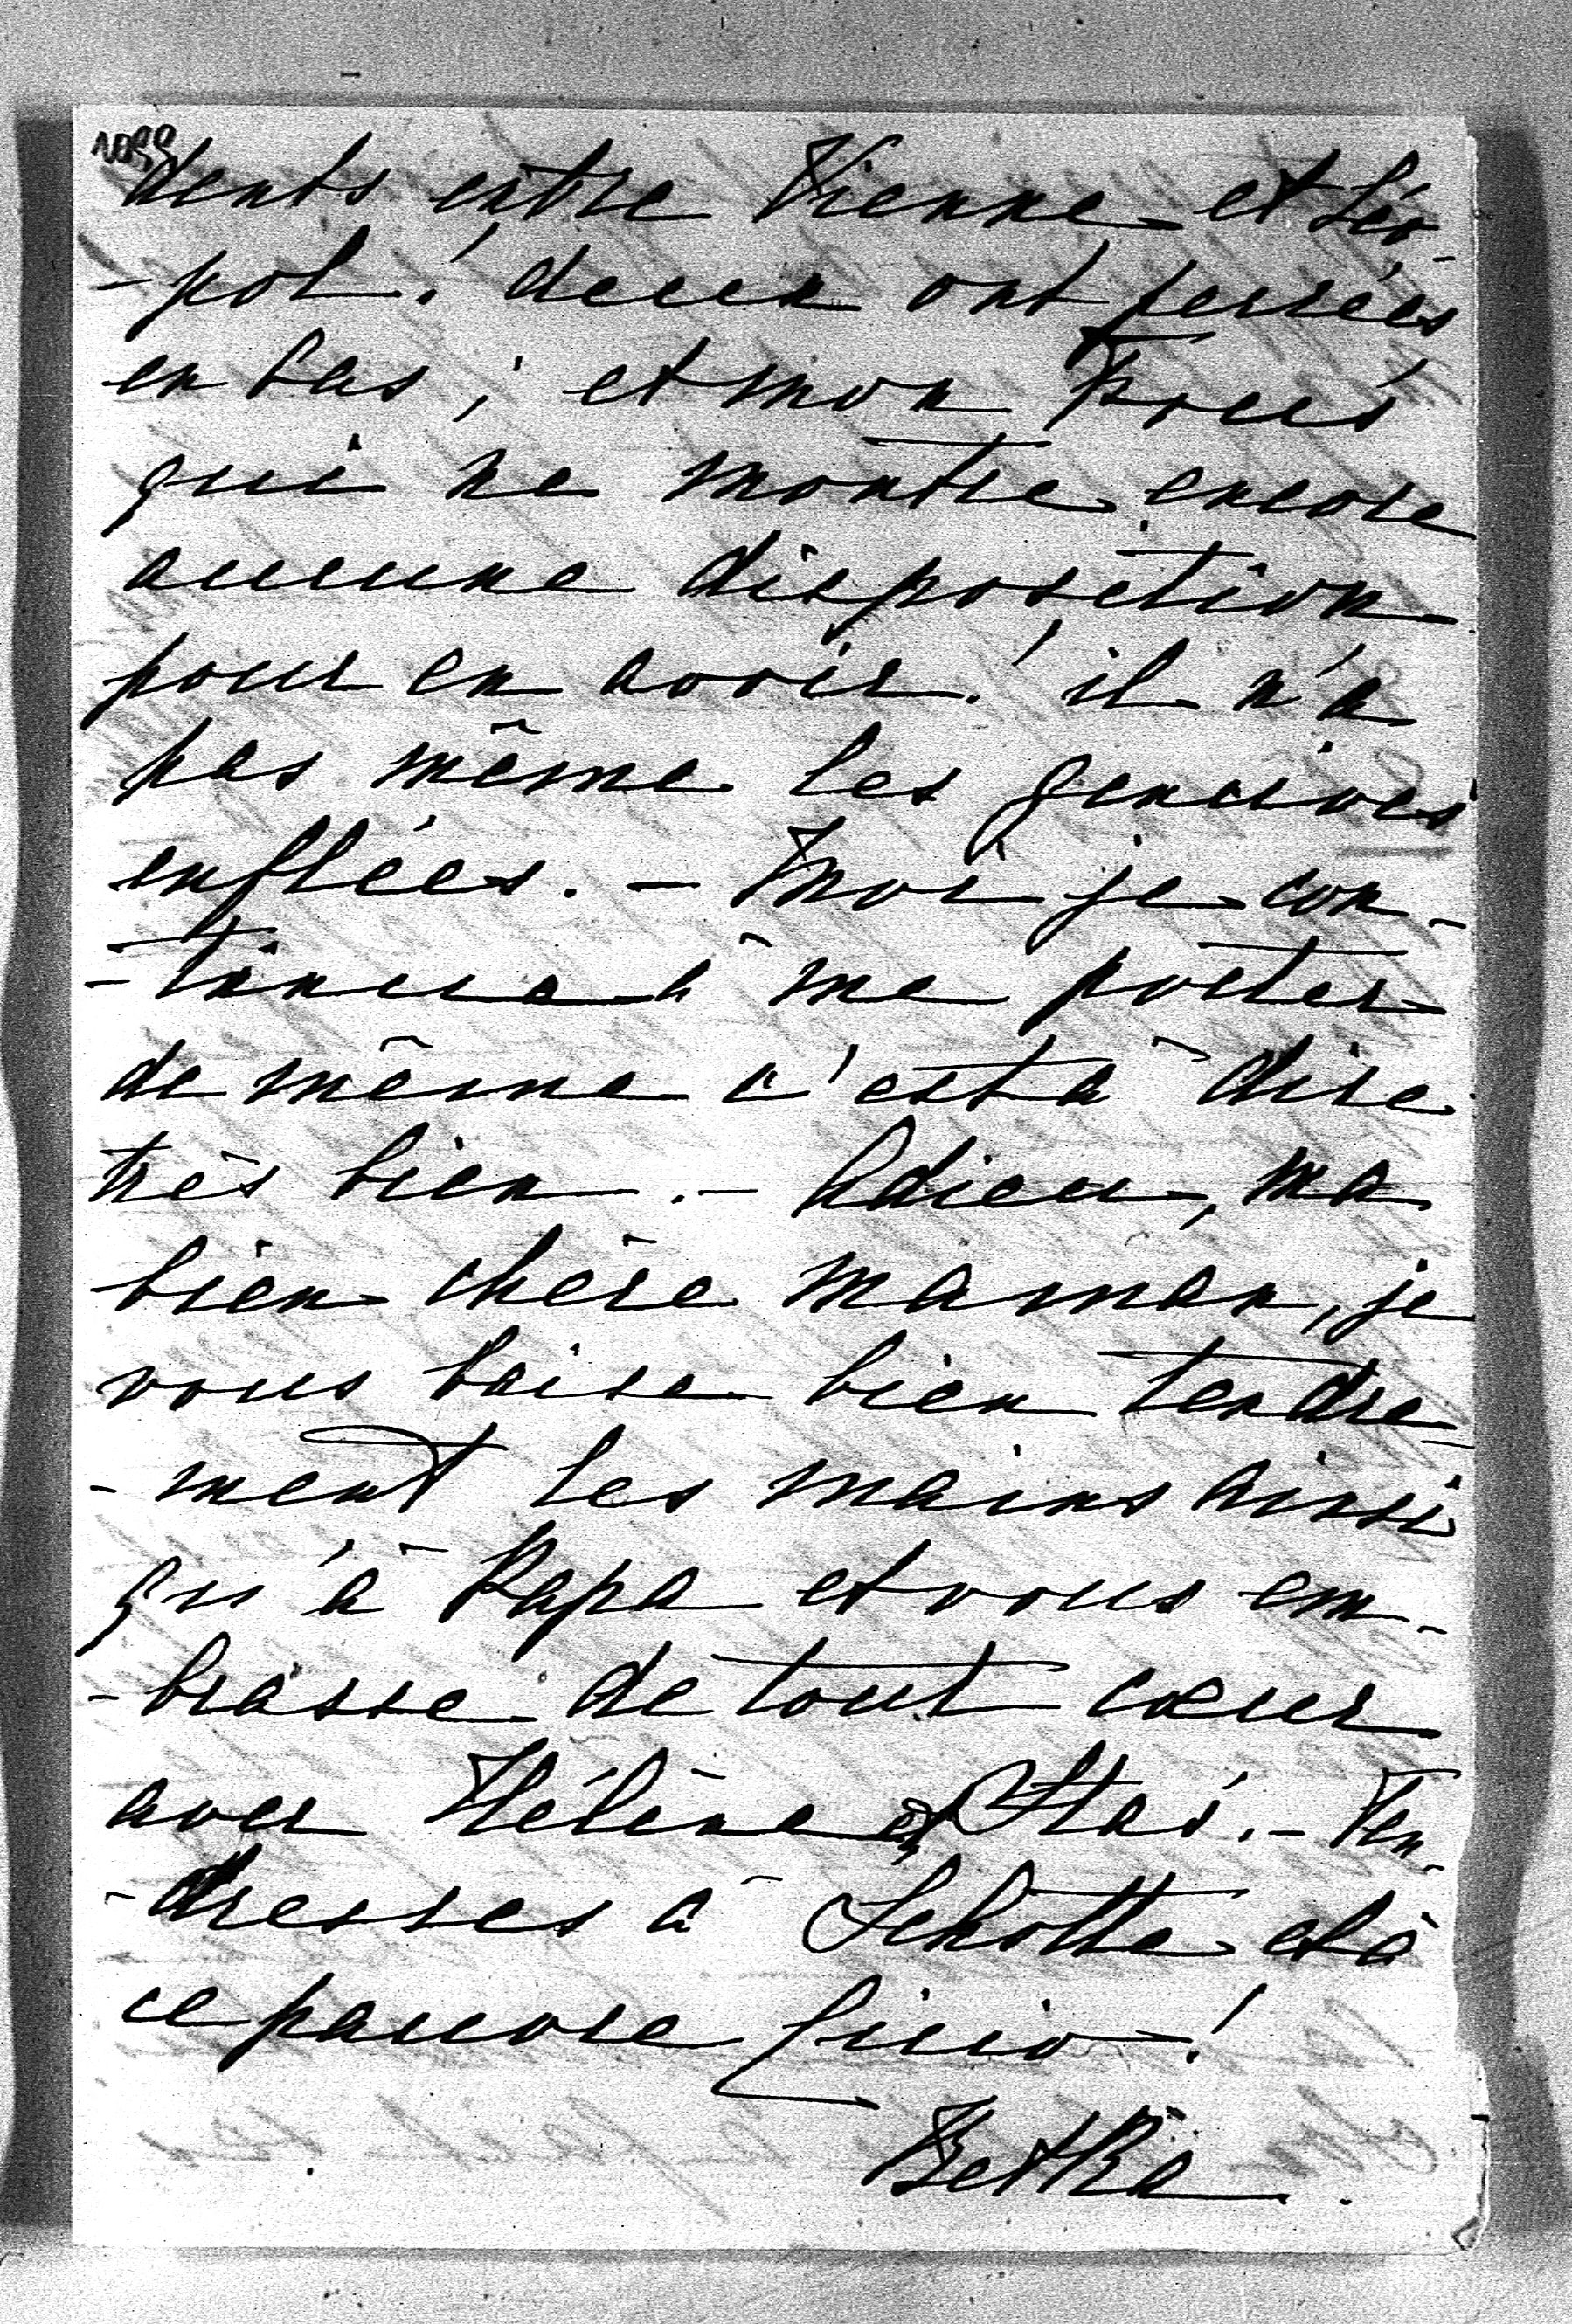 dents entre Vienne et Léo-
-pol! deux ont percées
en bas; et mon
qui ne montre encore
aucune disposition
pour en avoir! il n'a
pas même les gencives
enflées. - Moi je con-
-tinue à me porter
de même c'est à dire
très bien. - Adieu, ma
bien chère maman, je
vous baise bien tendre-
-ment les mains ainsi
qu'à Papa et vous em-
-brasse de tout cœur
avec Hélène et Staś. - Ten-
-dresses à Schotte et à
ce pauvre
Betka.